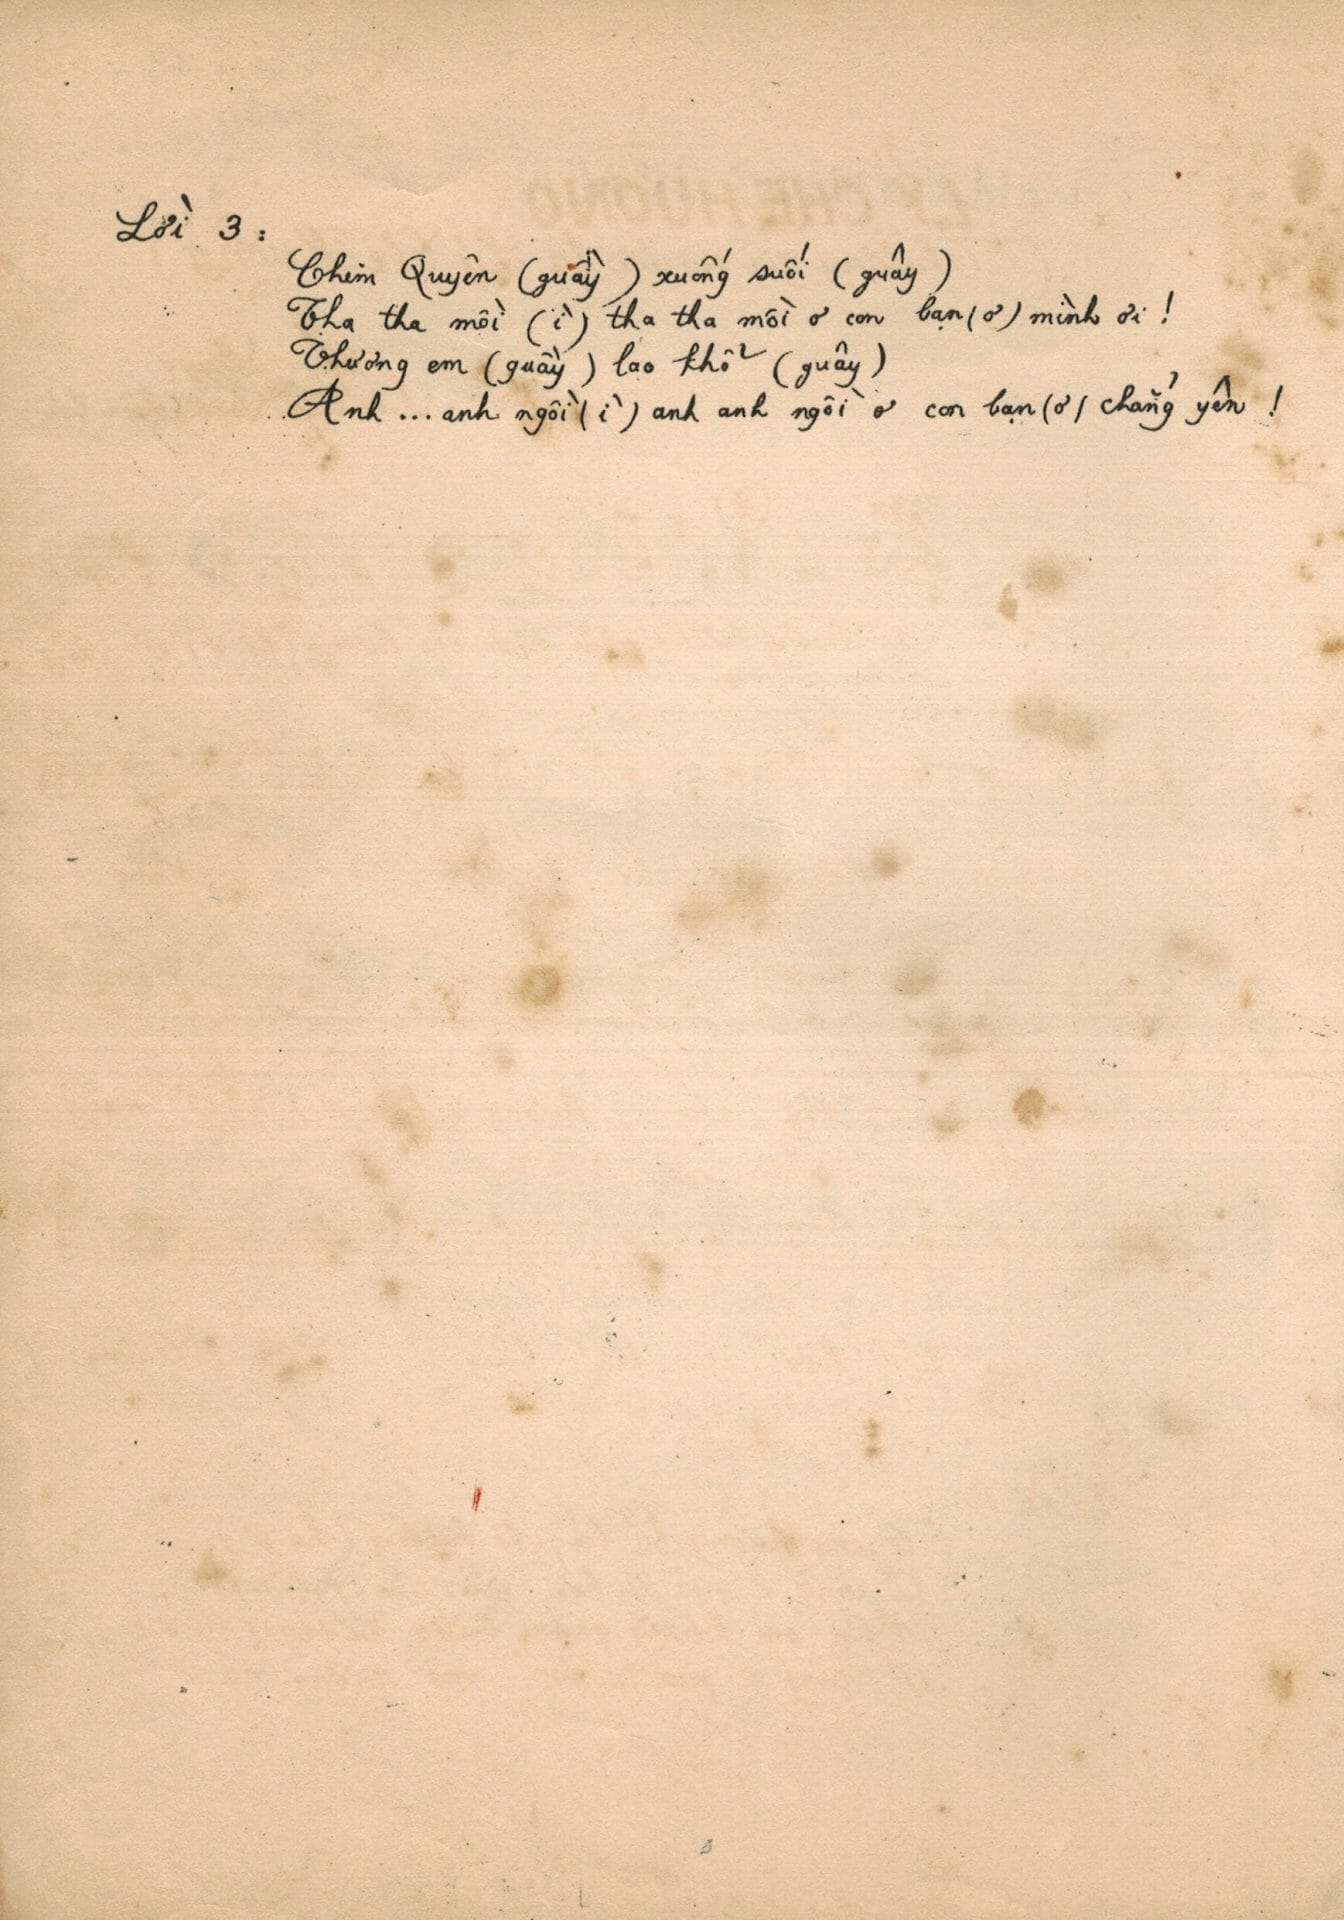 Lời 3 :
Chim Quyên (quầy) xuống suối (quây)
Tha tha mồi (ì) tha tha mồi ơ con bạn (ơ) mình ơi !
Thương em (quầy) lao khổ (quây)
Anh ... anh ngồi (ì) anh anh ngồi ơ con bạn (ơ) chẳng yên !